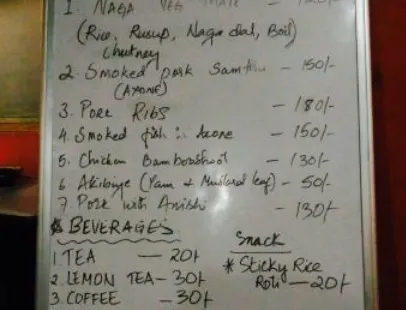 1. NAGA VEG THALI — 120/-
(Rice, Rusup, Naga dal, Boil)
Chutney
2. Smoked pork Samthu — 150/-
(AXONE)
3. Pork Ribs — 180/-
4. Smoked fish in axone — 150/-
5. Chicken Bambooshoot — 130/-
6 Akibiye (Yam + Mustard leaf) - 50/-
7. Pork with Anishi — 130/-
* BEVERAGES
1. TEA — 20/-
2. LEMON TEA - 30/-
3. COFFEE — 30/-
Snack
* Sticky Rice
Roti — 20/-